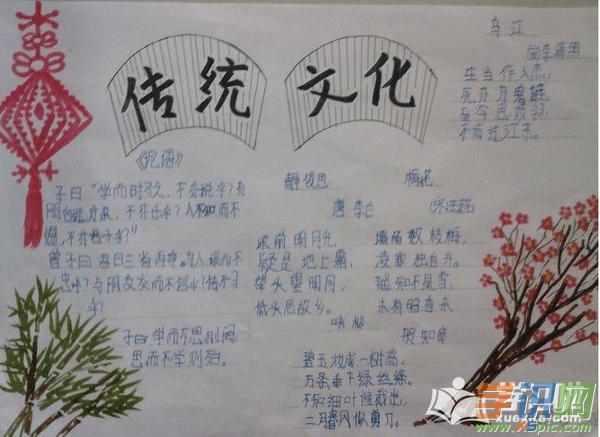 传统 文化
乌江
生当作人杰,
死亦为鬼雄,
至今思项羽,
不肯过江东。
《论语》
子曰:“学而时习之,不亦说乎?有
朋自远方来,不亦乐乎?人不知而不
愠,不亦君子乎?”
曾子曰:吾日三省吾身。为人谋而不
忠乎?与朋友交而不信乎?传不习
乎?
子曰:学而不思则罔,
思而不学则殆。
静夜思
唐 李白
床前明月光,
疑是地上霜,
举头望明月,
低头思故乡。
梅花
墙角数枝梅,
凌寒独自开。
遥知不是雪,
咏柳
贺知章
碧玉妆成一树高,
万条垂下绿丝绦。
不知细叶谁裁出,
二月春风似剪刀。
学识网
xuexila.com
www.XSpic.com